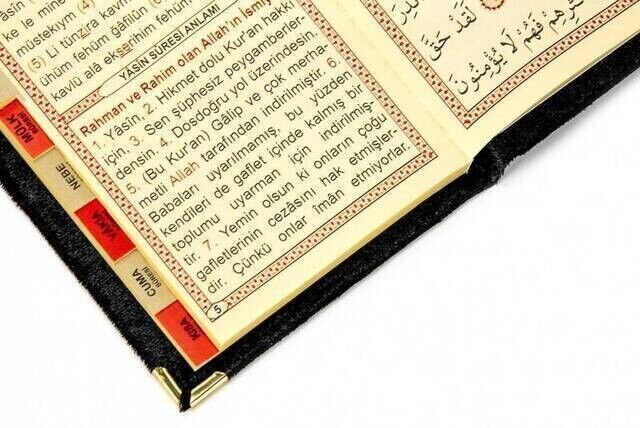 ke le mine
müstekıym (4)
(5) Li tünzira kavme
ühüm fehüm gâfilûn
kavlü alâ ekserihim fehüm
YÂSÎN SÛRESİ ANLAMI
Rahman ve Rahim olan Allah'ın İsmiy
1. Yâsîn. 2. Hikmet dolu Kur'an hakkı
için, 3. Sen şüphesiz peygamberler-
densin. 4. Dosdoğru yol üzerindesin.
5. (Bu Kur'an) Gâlip ve çok merha-
metli Allah tarafından indirilmiştir. 6.
Babaları uyarılmamış, bu yüzden
kendileri de gaflet içinde kalmış bir
toplumu uyarman için indirilmiş-
tir. 7. Yemin olsun ki onların çoğu
gafletlerinin cezâsını hak etmişler-
dir. Çünkü onlar îmân etmiyorlar.
5
لَقَدْ حَقَّ
فَهُمْ لَا يُؤْمِنُونَ
MÜLK
SÛRESİ
NEBE
VAKIA
CUMA
SÛRESİ
KISA